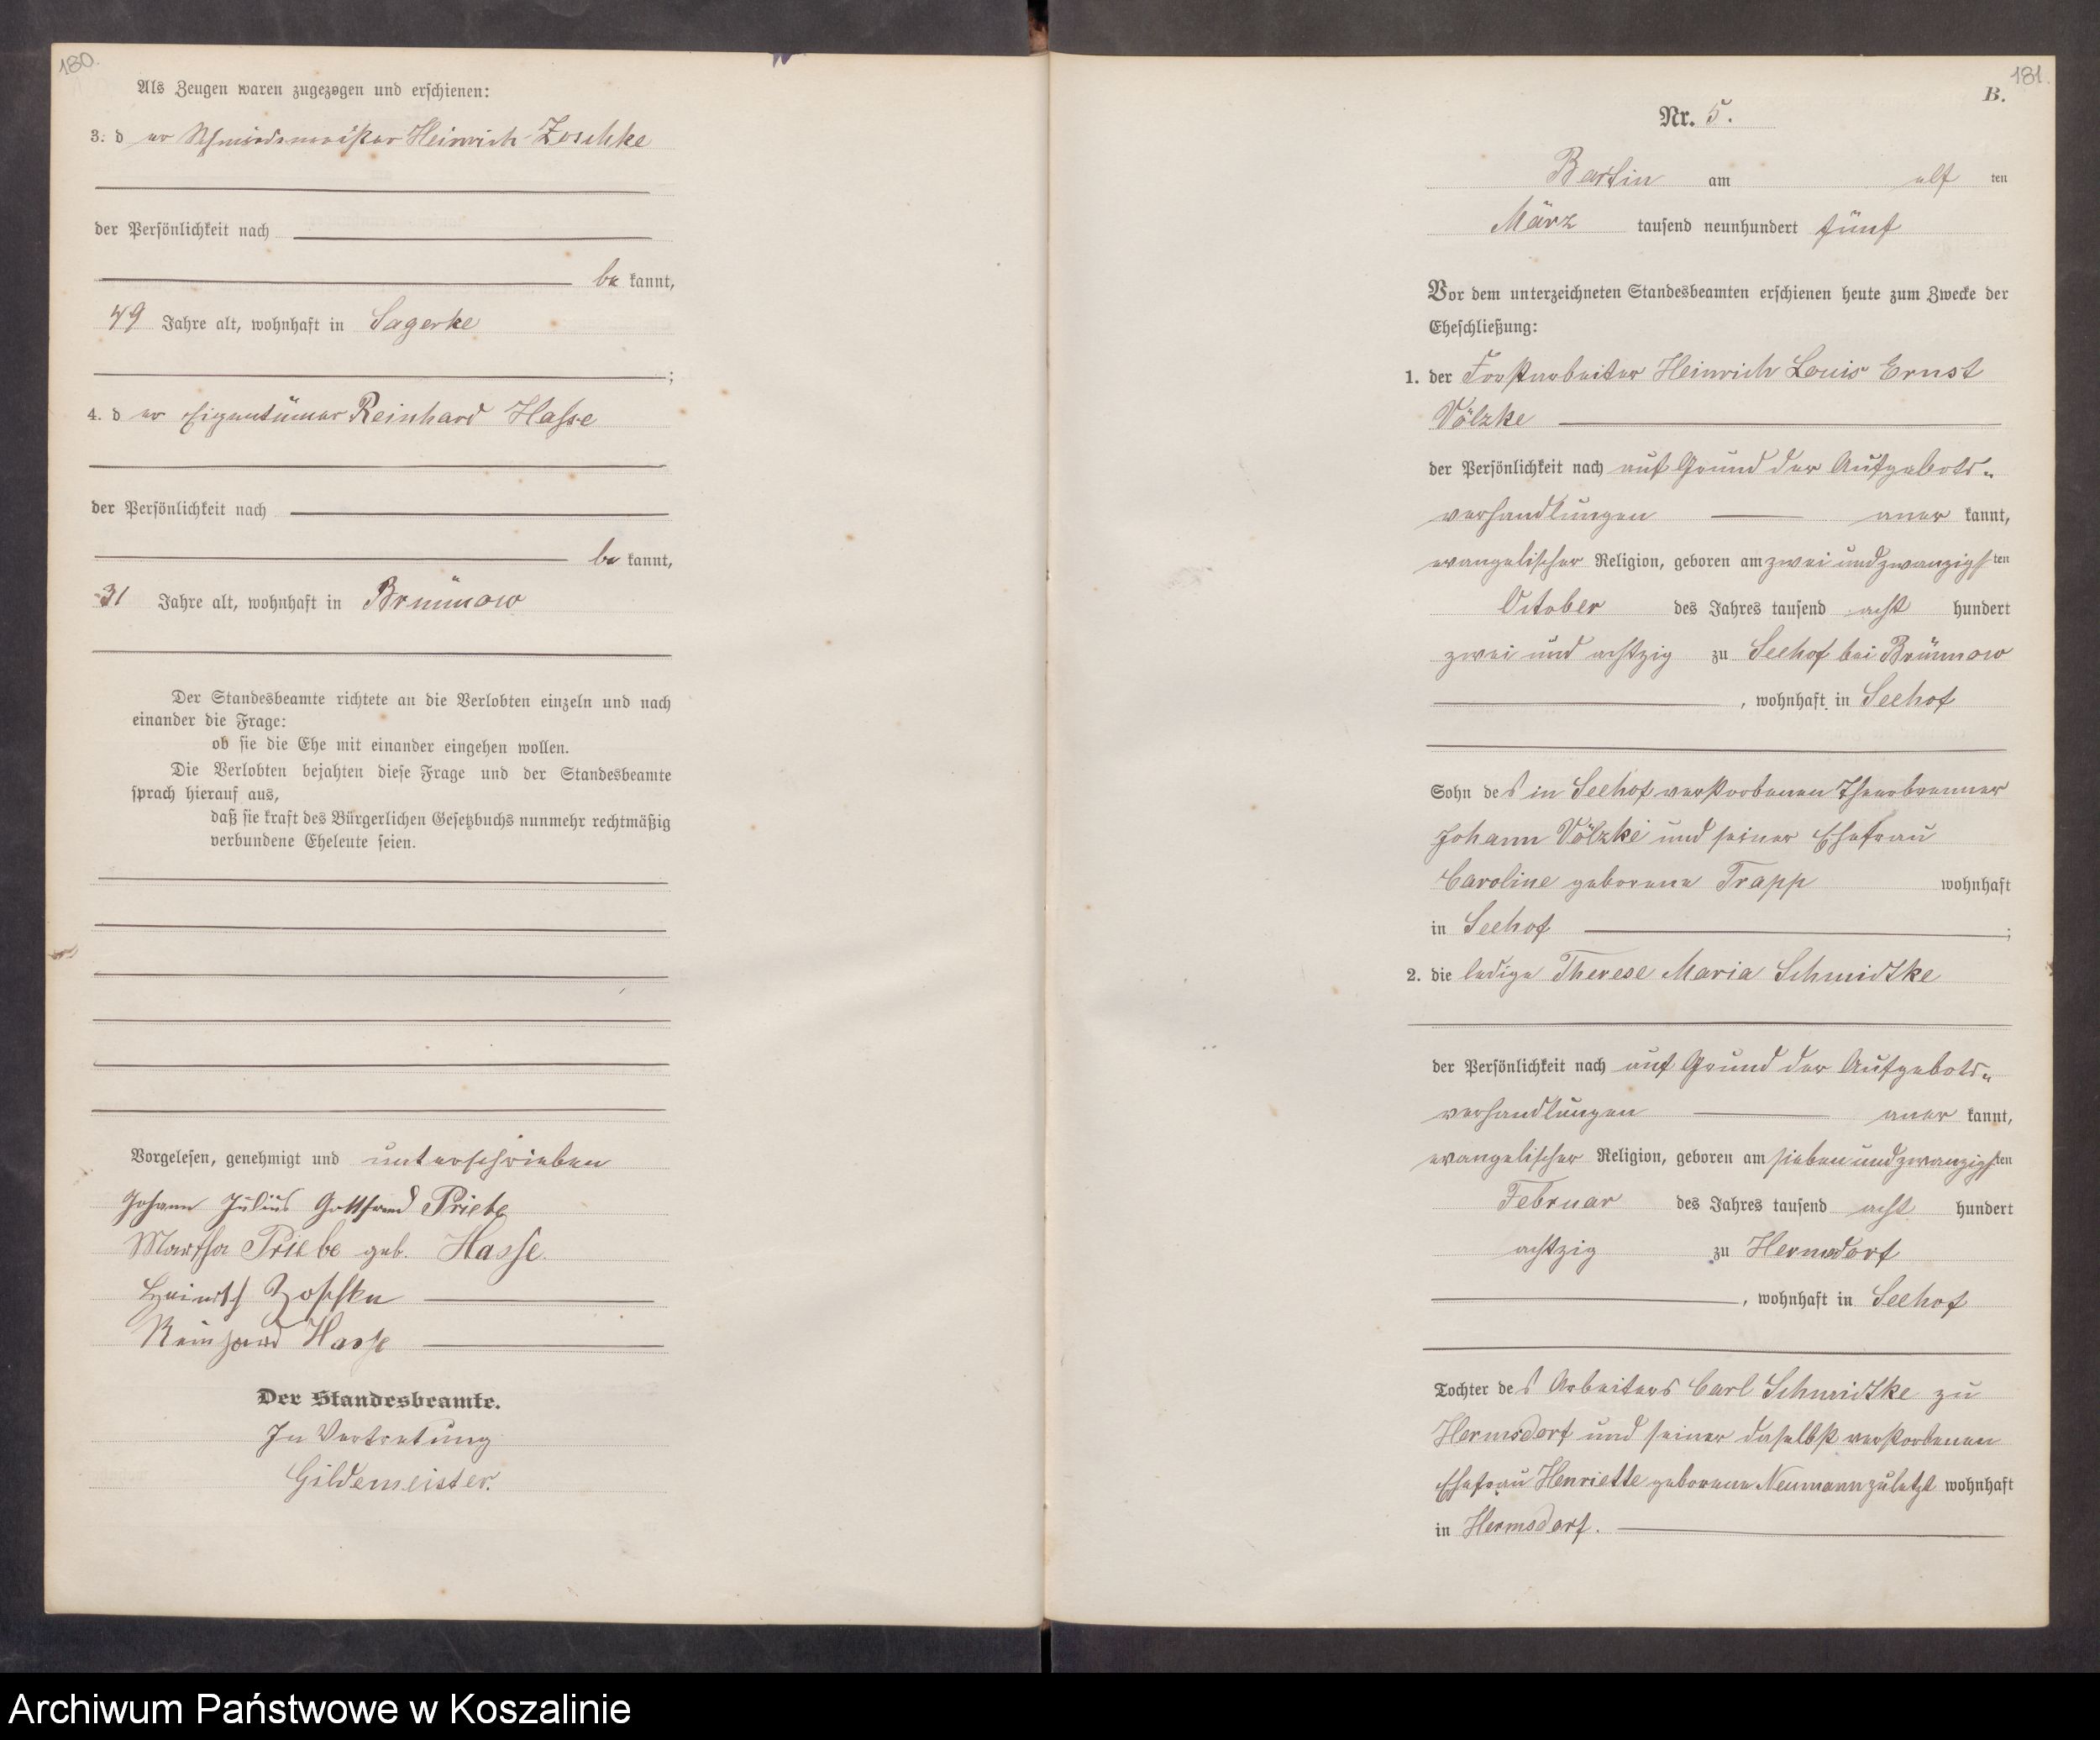 180.
Als Zeugen waren zugezogen und erschienen:
3. d er Schmiedemeister Heinrich Zoschke
der Persönlichkeit nach
be kannt,
49 Jahre alt, wohnhaft in Sagerke
;
4. d er Eigentümer Reinhard Hasse
der Persönlichkeit nach
be kannt,
31 Jahre alt, wohnhaft in Brünnow
Der Standesbeamte richtete an die Verlobten einzeln und nach
einander die Frage:
ob sie die Ehe mit einander eingehen wollen.
Die Verlobten bejahten diese Frage und der Standesbeamte
sprach hierauf aus,
daß sie kraft des Bürgerlichen Gesetzbuchs nunmehr rechtmäßig
verbundene Eheleute seien.
Vorgelesen, genehmigt und unterschrieben
Johann Julius Gottfried Priebe
Martha Priebe geb. Hasse.
Heinrich Zoschke
Reinhard Hasse
Der Standesbeamte.
In Vertretung
Gildemeister.
181.
B.
Nr. 5.
Bartin am elf ten
März tausend neunhundert fünf
Vor dem unterzeichneten Standesbeamten erschienen heute zum Zwecke der
Eheschließung:
1. der Forstarbeiter Heinrich Louis Ernst
Völzke
der Persönlichkeit nach auf Grund der Aufgebots-
verhandlungen aner kannt,
evangelischer Religion, geboren am zwei und zwanzigsten
October des Jahres tausend acht hundert
zwei und achtzig zu Seehof bei Brünnow
, wohnhaft in Seehof
Sohn des in Seehof verstorbenen Theerbrenner
Johann Völzke und seiner Ehefrau
Caroline geborene Trapp wohnhaft
in Seehof ;
2. die ledige Therese Maria Schmidtke
der Persönlichkeit nach auf Grund der Aufgebots-
verhandlungen aner kannt,
evangelischer Religion, geboren am sieben und zwanzigsten
Februar des Jahres tausend acht hundert
achtzig zu Hermsdorf
, wohnhaft in Seehof
Tochter des Arbeiters Carl Schmidtke zu
Hermsdorf und seiner daselbst verstorbenen
Ehefrau Henriette geborene Neumann zuletzt wohnhaft
in Hermsdorf.
Archiwum Państwowe w Koszalinie